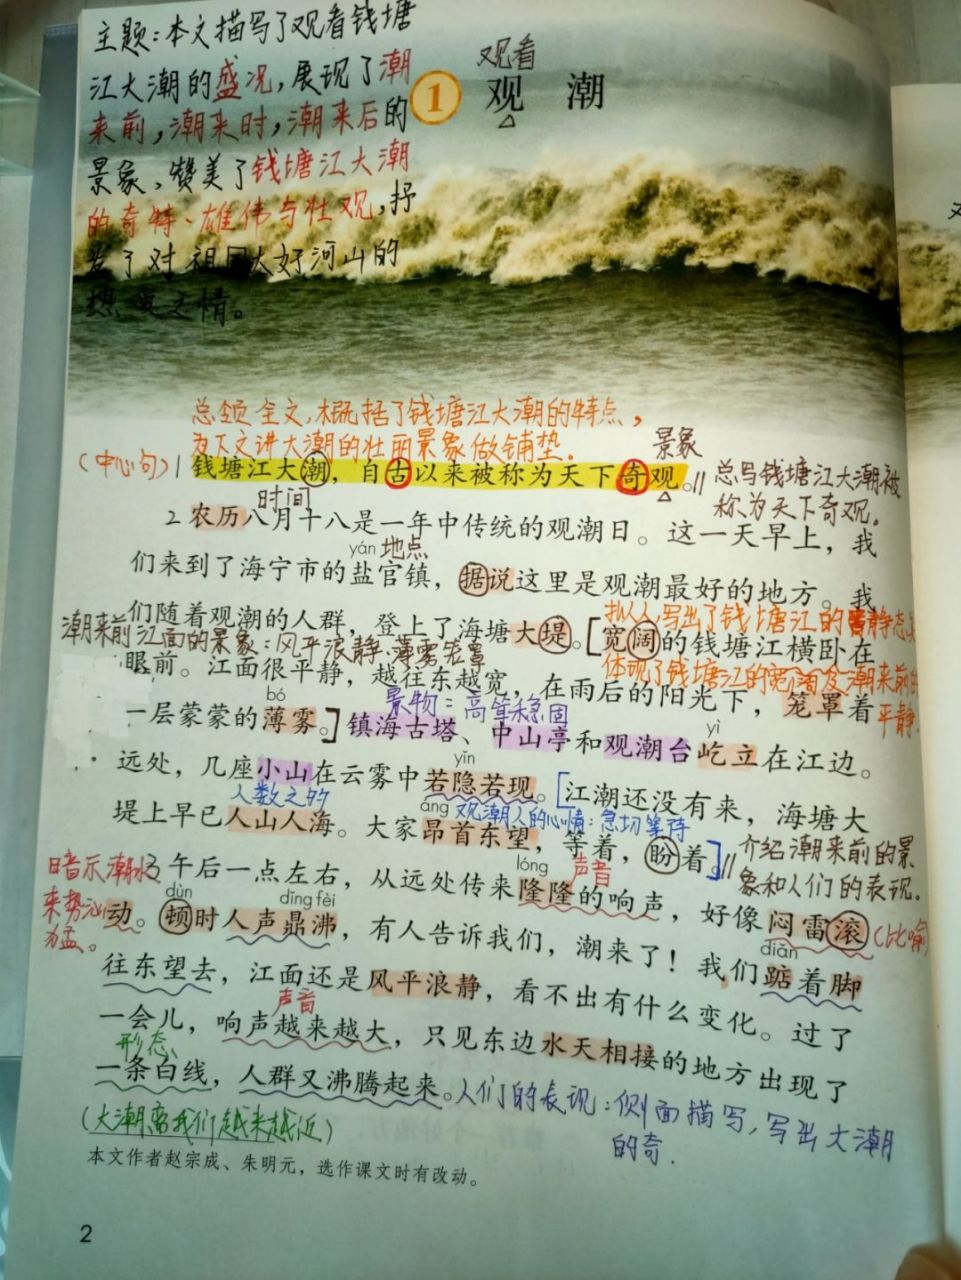 主题：本文描写了观看钱塘
江大潮的盛况，展现了潮
来前，潮来时，潮来后的
景象，赞美了钱塘江大潮
的奇特、雄伟与壮观，抒
发了对祖国大好河山的
热爱之情。
观看
1 观 潮
总领全文，概括了钱塘江大潮的特点，
为下文讲大潮的壮丽景象做铺垫。
景象
（中心句）1 钱塘江大潮，自古以来被称为天下奇观。
总写钱塘江大潮被
称为天下奇观。
时间
2 农历八月十八是一年中传统的观潮日。这一天早上，我
yán 地点
们来到了海宁市的盐官镇，据说这里是观潮最好的地方。我
们随着观潮的人群，登上了海塘大堤。宽阔的钱塘江横卧在
拟人，写出了钱塘江的静态
体现了钱塘江的宽阔及潮来前的
平静
潮来前江面的景象：风平浪静、薄雾笼罩
眼前。江面很平静，越往东越宽，在雨后的阳光下，笼罩着
bó
景物：高耸稳固
yì
一层蒙蒙的薄雾。镇海古塔、中山亭和观潮台屹立在江边。
yǐn
远处，几座小山在云雾中若隐若现。江潮还没有来，海塘大
人数之多
áng 观潮人的心情：急切等待
堤上早已人山人海。大家昂首东望，等着，盼着。
介绍潮来前的景
象和人们的表现。
lóng 声音
午后一点左右，从远处传来隆隆的响声，好像闷雷滚
（比喻
暗示潮水
来势汹
为猛。
dùn dǐng fèi
动。顿时人声鼎沸，有人告诉我们，潮来了！我们踮着脚
diǎn
往东望去，江面还是风平浪静，看不出有什么变化。过了
声音
一会儿，响声越来越大，只见东边水天相接的地方出现了
形态、
一条白线，人群又沸腾起来。人们的表现：侧面描写，写出大潮
的奇.
（大潮离我们越来越近）
本文作者赵宗成、朱明元，选作课文时有改动。
2